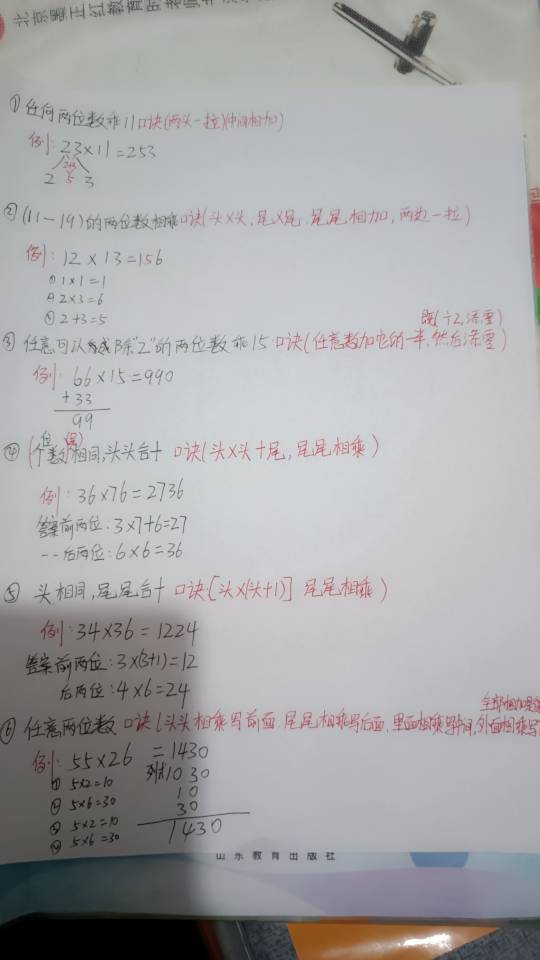 北京墨正红教育
① 任何两位数乖11口诀(两头一拉,中间相加)
例: 23×11=253
2+3
2 5 3
② (11-19)的两位数相乘口诀(头×头,尾×尾,尾尾相加,两边一拉)
例: 12×13=156
① 1×1=1
② 2×3=6
③ 2+3=5
(÷2,添零)
③ 任意可以除"2"的两位数乖15口诀(任意数加它的一半,然后添零)
例: 66×15=990
+33
99
位(尾)
④ (个数)相同,头头合十 口诀(头×头+尾,尾尾相乘)
例: 36×76=2736
答案前两位: 3×7+6=27
--后两位: 6×6=36
⑤ 头相同,尾尾合十 口诀[头×(头+1)] 尾尾相乘)
例: 34×36=1224
答案前两位: 3×(3+1)=12
后两位: 4×6=24
全部相加
⑥ 任意两位数 口诀(头头相乘写前面,尾尾相乘写后面,里面相乘写中间,外面相乘写
例: 55×26 =1430
① 5×2=10 列式1030
② 5×6=30 10
③ 5×2=10 30
④ 5×6=30 1430
山东教育出版社